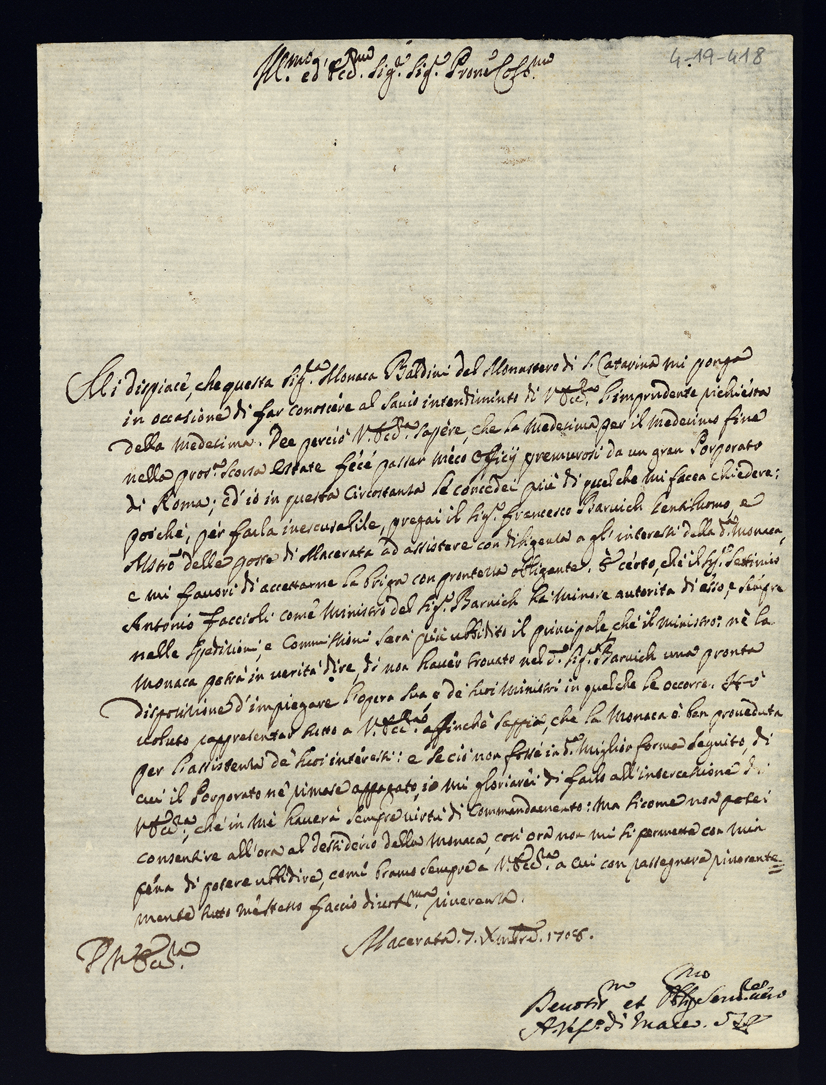 4-19-418
Ill.mo ed Ecc.mo Sig.r Sig.r Prone Col.mo
Mi dispiace, che questa Sig.ra Monaca Baldini del Monastero di S. Catarina mi ponga
in occasione di far conoscere al savio intendimento di V. Ecc.za l'imprudente richiesta
della medesima. Dee perciò V. Ecc.za sapere, che la medesima per il medesimo fine
nella pros.a scorsa estate fece passar meco officij premurosi da un gran Porporato
di Roma; ed io in questa circostanza le concedei più di quel che mi facea chiedere;
poiche, per farla inescusabile, pregai il Sig.r Francesco Barvich Gentiluomo, e
Mstro delle poste di Macerata ad assistere con diligenza a gl'interessi della d.a Monaca,
e mi favorì di accettarne la briga con prontezza obligante. È certo, che il Sig.r Settimio
Antonio Faccioli come Ministro del Sig.r Barvich ha minore autorità di esso, e sempre
nelle spedizioni, e commissioni sarà più ubbidito il principale che il ministro: nè la
Monaca potrà in verità dire, di non haver trovato nel d.o Sig.r Barvich una pronta
disposizione d'impiegare l'opera sua e de suoi Ministri in quel che le occorre. Hò
voluto rappresentar tutto a V. Ecc.za affinche sappia, che la Monaca è ben proveduta
per l'assistenza de suoi interessi: e se ciò non fosse in d.a miglior forma seguito, di
cui il Porporato nè rimase appagato, io mi gloriarei di farlo all'intercessione di
V. Ecc.za, che in me haverà sempre virtù di commandamento: ma sicome non potei
consentire all'ora al desiderio della Monaca, così ora non mi si permette con mia
pena di potere ubbidire, come bramo sempre a V. Ecc.za a cui con rassegnare riverente=
mente tutto me stesso faccio divot.ma riverenza.
Macerata 7. Xmbre. 1708.
D. V. Ecc.za
Devotis.mo et Obl.mo Serv.re vero
A. Vesc.o di Mac.a